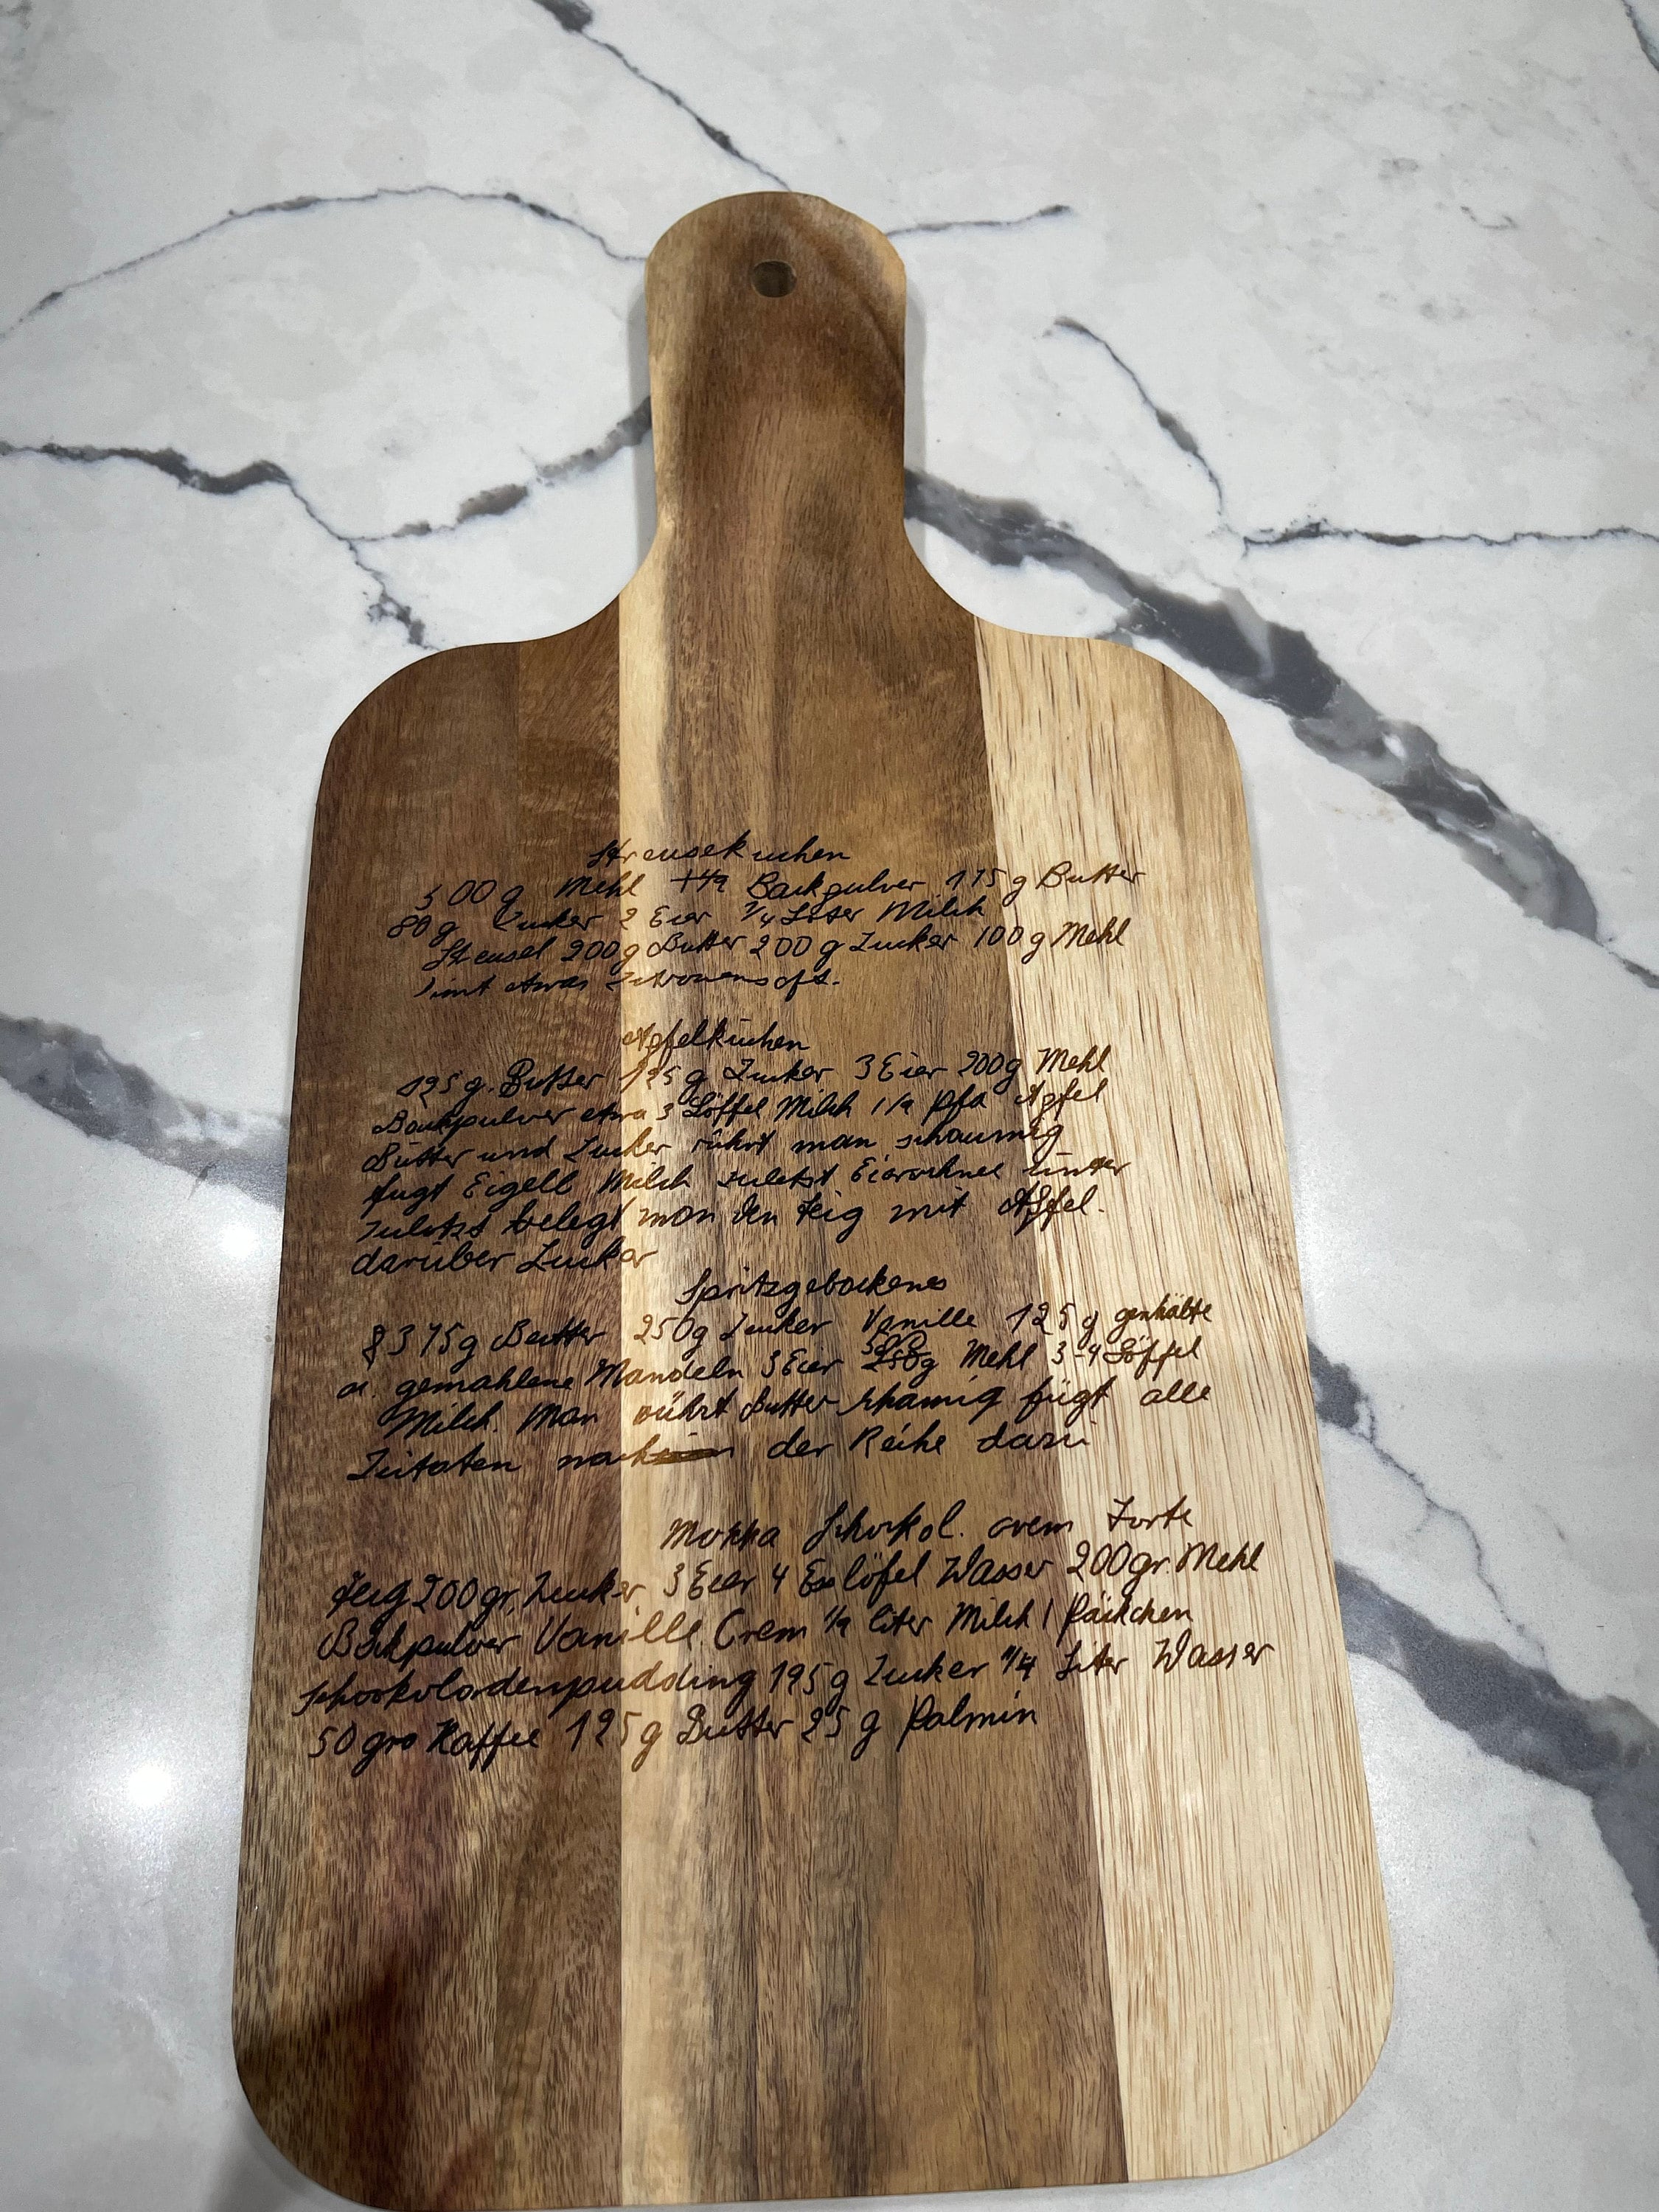 Streuselkuchen
500 g Mehl Backpulver 175 g Butter
80 g Zucker 2 Eier 1/4 Liter Milch
Streusel 200 g Butter 200 g Zucker 100 g Mehl
Zimt etwas Zitronensaft.
Apfelkuchen
125 g. Butter 125 g Zucker 3 Eier 200 g Mehl
Backpulver etwa 3 Löffel Milch Apfel
Butter und Zucker rührt man schaumig
fugt Eigelb Milch zuletzt Eierschnee unter
zuletzt belegt man den Teig mit Apfel.
darüber Zucker
Spritzgebackenes
375 g Butter 250 g Zucker Vanille 125 g
gemahlene Mandeln 3 Eier 500 g Mehl 3-4 Löffel
Milch. Man rührt Butter schamig fügt alle
Zutaten nach der Reihe dazu
Mokka Schokol. crem Torte
Teig 200 gr. Zucker 3 Eier 4 Esslöfel Wasser 200 gr. Mehl
Backpulver Vanille. Crem 1/2 liter Milch 1 Päckchen
Schokoladenpudding 125 g Zucker 1/4 Liter Wasser
50 gr Kaffee 125 g Butter 25 g Palmin